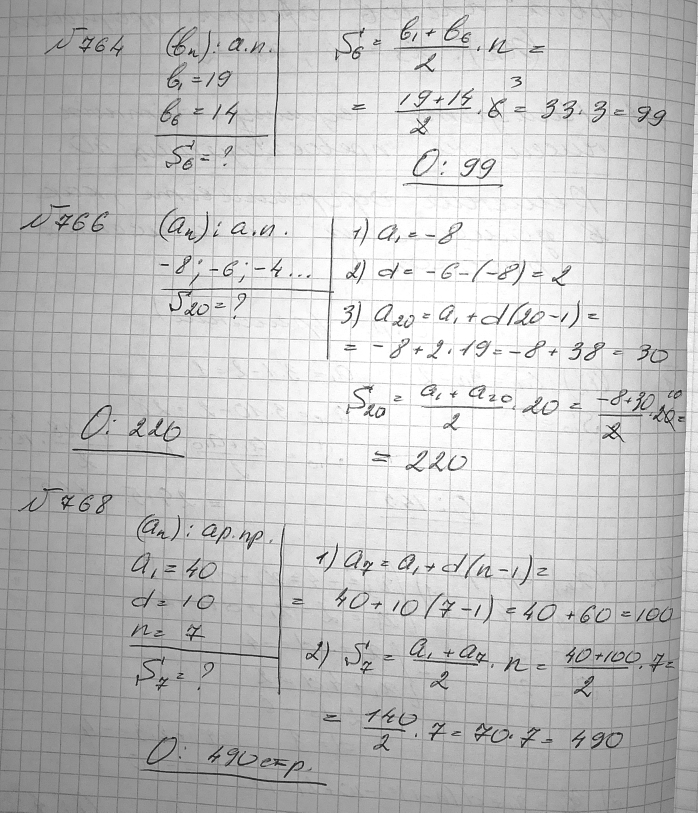 №764 (bn): а.п.
b₁=19
b₆=14
S₆=?
S₆ = (b₁+b₆)/2 · n =
= (19+14)/2 · 6 3 = 33·3=99
О: 99
№766 (an): а.п.
-8; -6; -4...
S₂₀=?
1) a₁=-8
2) d = -6-(-8) = 2
3) a₂₀=a₁+d(20-1)=
= -8+2·19=-8+38=30
S₂₀ = (a₁+a₂₀)/2 · 20 = (-8+30)/2 · 20 10 =
= 220
О: 220
№768
(an): ар.пр.
a₁=40
d=10
n=7
S₇=?
1) a₇=a₁+d(n-1)=
= 40+10(7-1)=40+60=100
2) S₇ = (a₁+a₇)/2 · n = (40+100)/2 · 7=
= 140/2 · 7=70·7= 490
О: 490 стр.